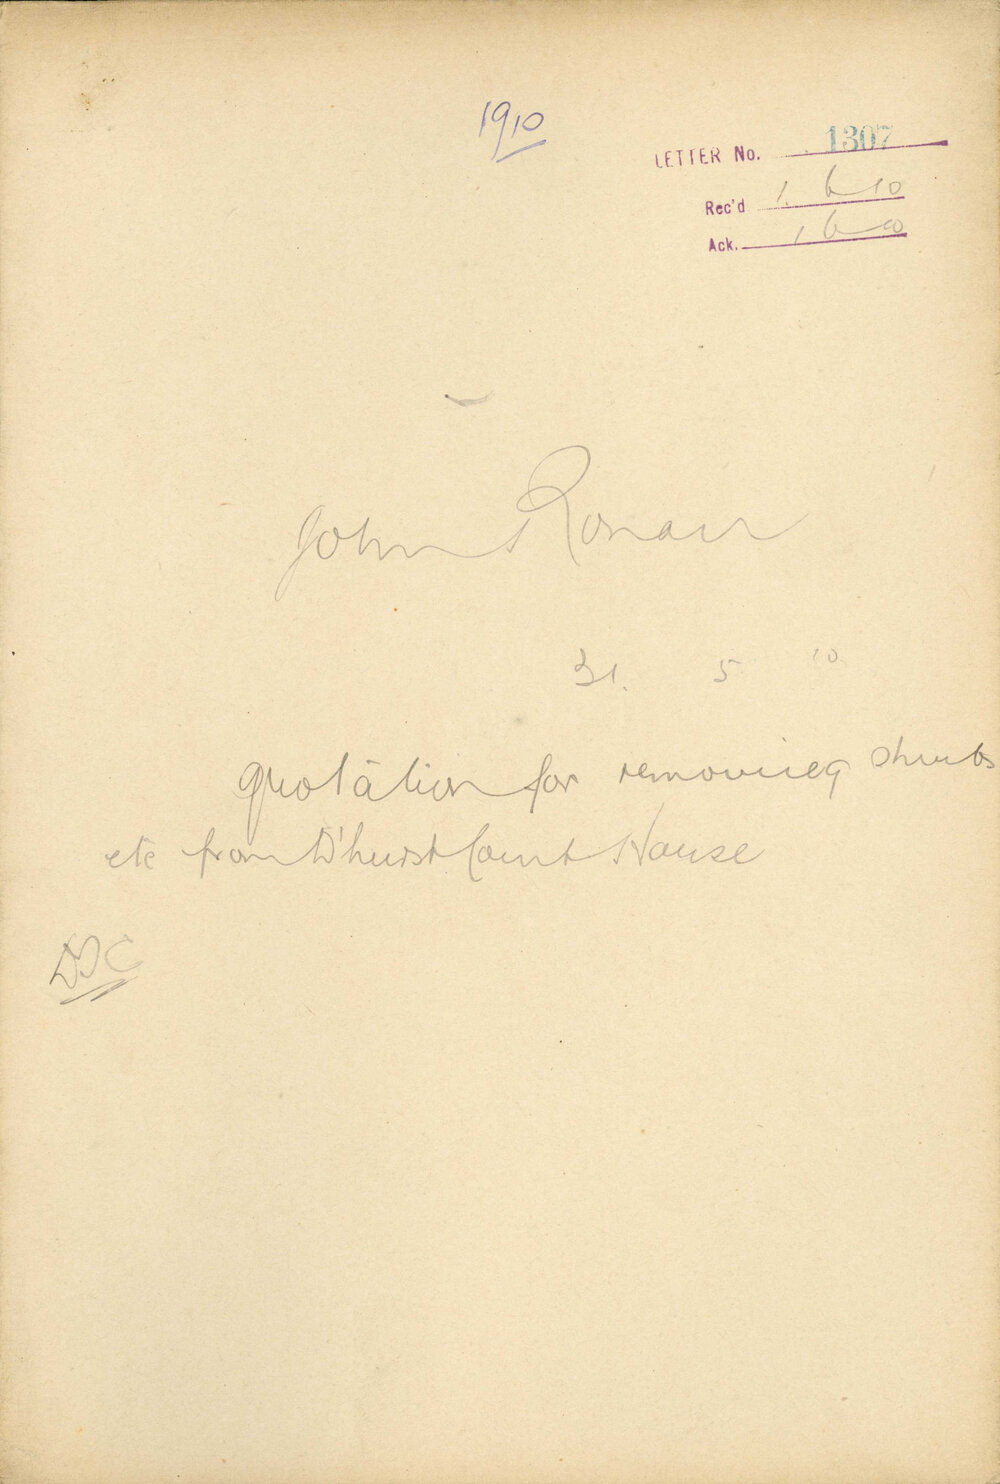 1910
LETTER No. 1307
Rec'd 1. 6 10
Ack. 1 6 10
John Ronan
31. 5 10
quotation for removing shrubs
etc from D'hurst Court House